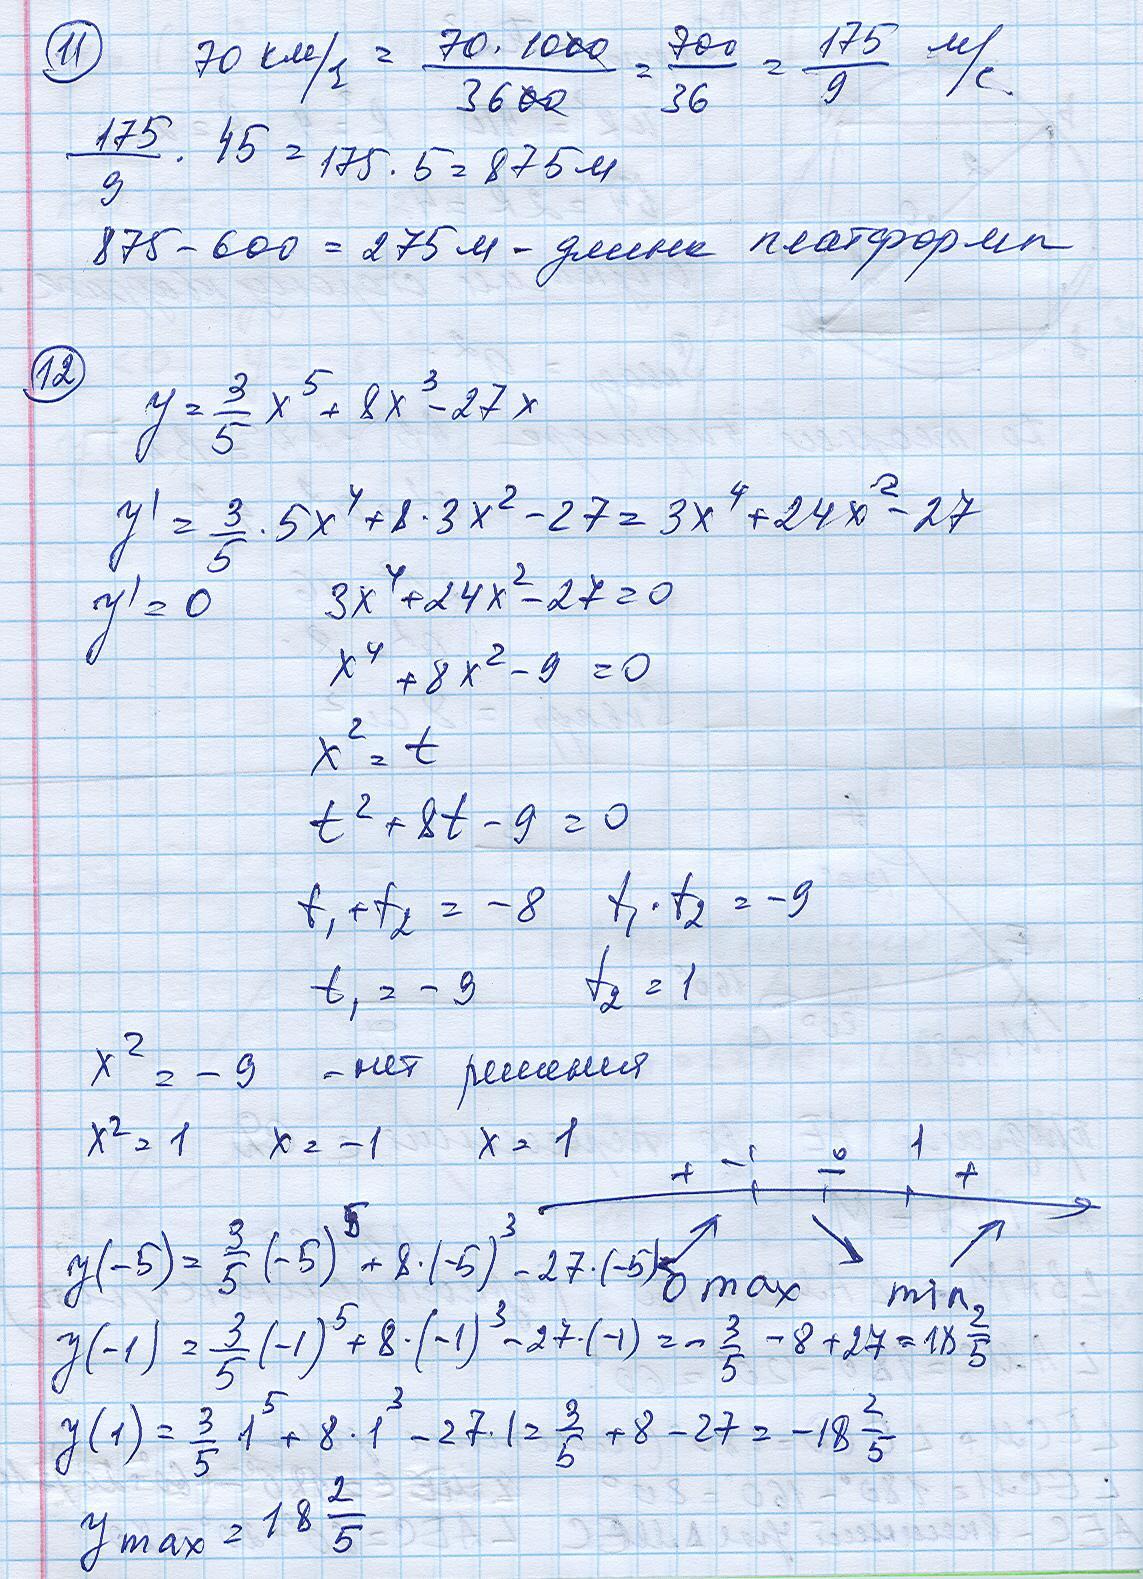 11 70 км/ч = 70·1000/3600 = 700/36 = 175/9 м/с
175/9 · 45 = 175·5 = 875 м
875 - 600 = 275 м - длина платформы
12
y = 3/5 x⁵ + 8x³ - 27x
y' = 3/5 · 5x⁴ + 8·3x² - 27 = 3x⁴ + 24x² - 27
y' = 0 3x⁴ + 24x² - 27 = 0
x⁴ + 8x² - 9 = 0
x² = t
t² + 8t - 9 = 0
t₁ + t₂ = -8 t₁ · t₂ = -9
t₁ = -9 t₂ = 1
x² = -9 - нет решения
x² = 1 x = -1 x = 1
+ -1 - 0 1 +
y(-5) = 3/5 (-5)⁵ + 8·(-5)³ - 27·(-5) =
max min
y(-1) = 3/5 (-1)⁵ + 8·(-1)³ - 27·(-1) = - 3/5 - 8 + 27 = 18 2/5
y(1) = 3/5 · 1⁵ + 8·1³ - 27·1 = 3/5 + 8 - 27 = -18 2/5
y max = 18 2/5